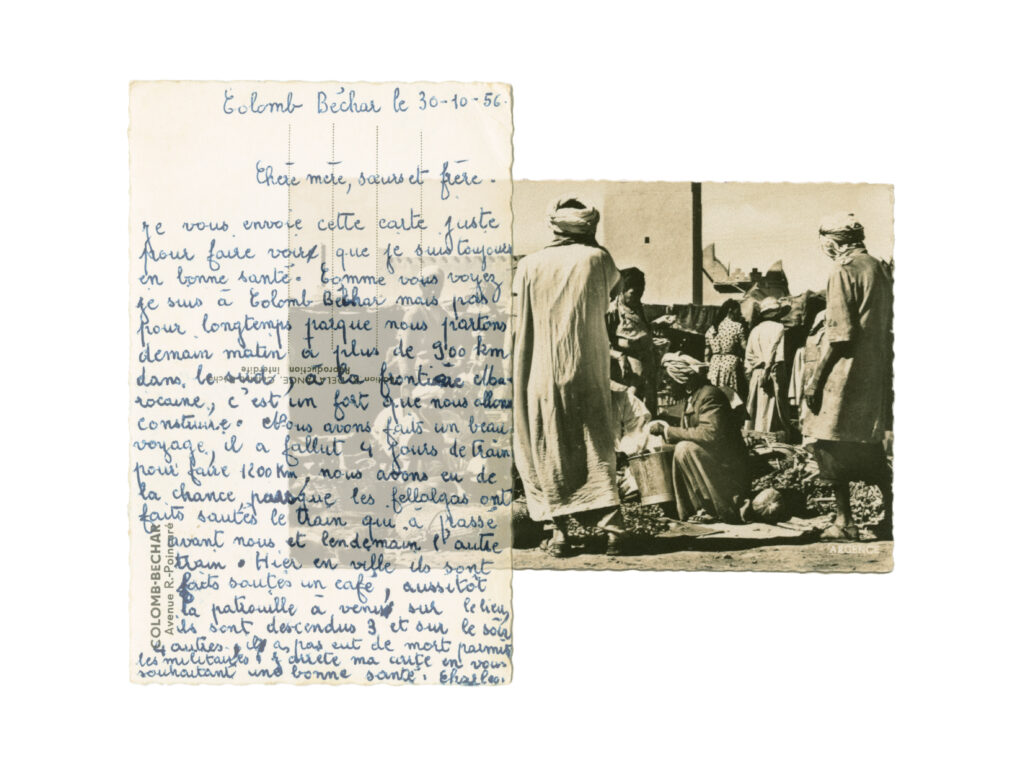 Colomb Béchar le 30-10-56.
Chère mère, sœurs et frère.
je vous envoie cette carte juste
pour faire voire que je suis toujours
en bonne santé. Comme vous voyez
je suis à Colomb Béchar mais pas
pour longtemps parque nous partons
demain matin à plus de 900 km
dans le sud, à la frontière Ma-
rocaine, c'est un fort que nous allons
construire. Nous avons faits un beau
voyage, il a fallut 4 jours de train
pour faire 1200 km, nous avons eu de
la chance parsque les fellalgas ont
faits sautés le train qui à passé
avant nous et lendemain l'autre
train. Hier en ville ils sont
faits sautés un café, aussitôt
la patrouille à venus sur le lieu,
ils sont descendus 3 et sur le soir
4 autres. il a pas eut de mort parmis
les militaires. j'arrête ma carte en vous
souhaitant une bonne santé. Charles.
COLOMB-BECHAR
Avenue R.-Poincaré
Reproduction interdite
ARGENCE